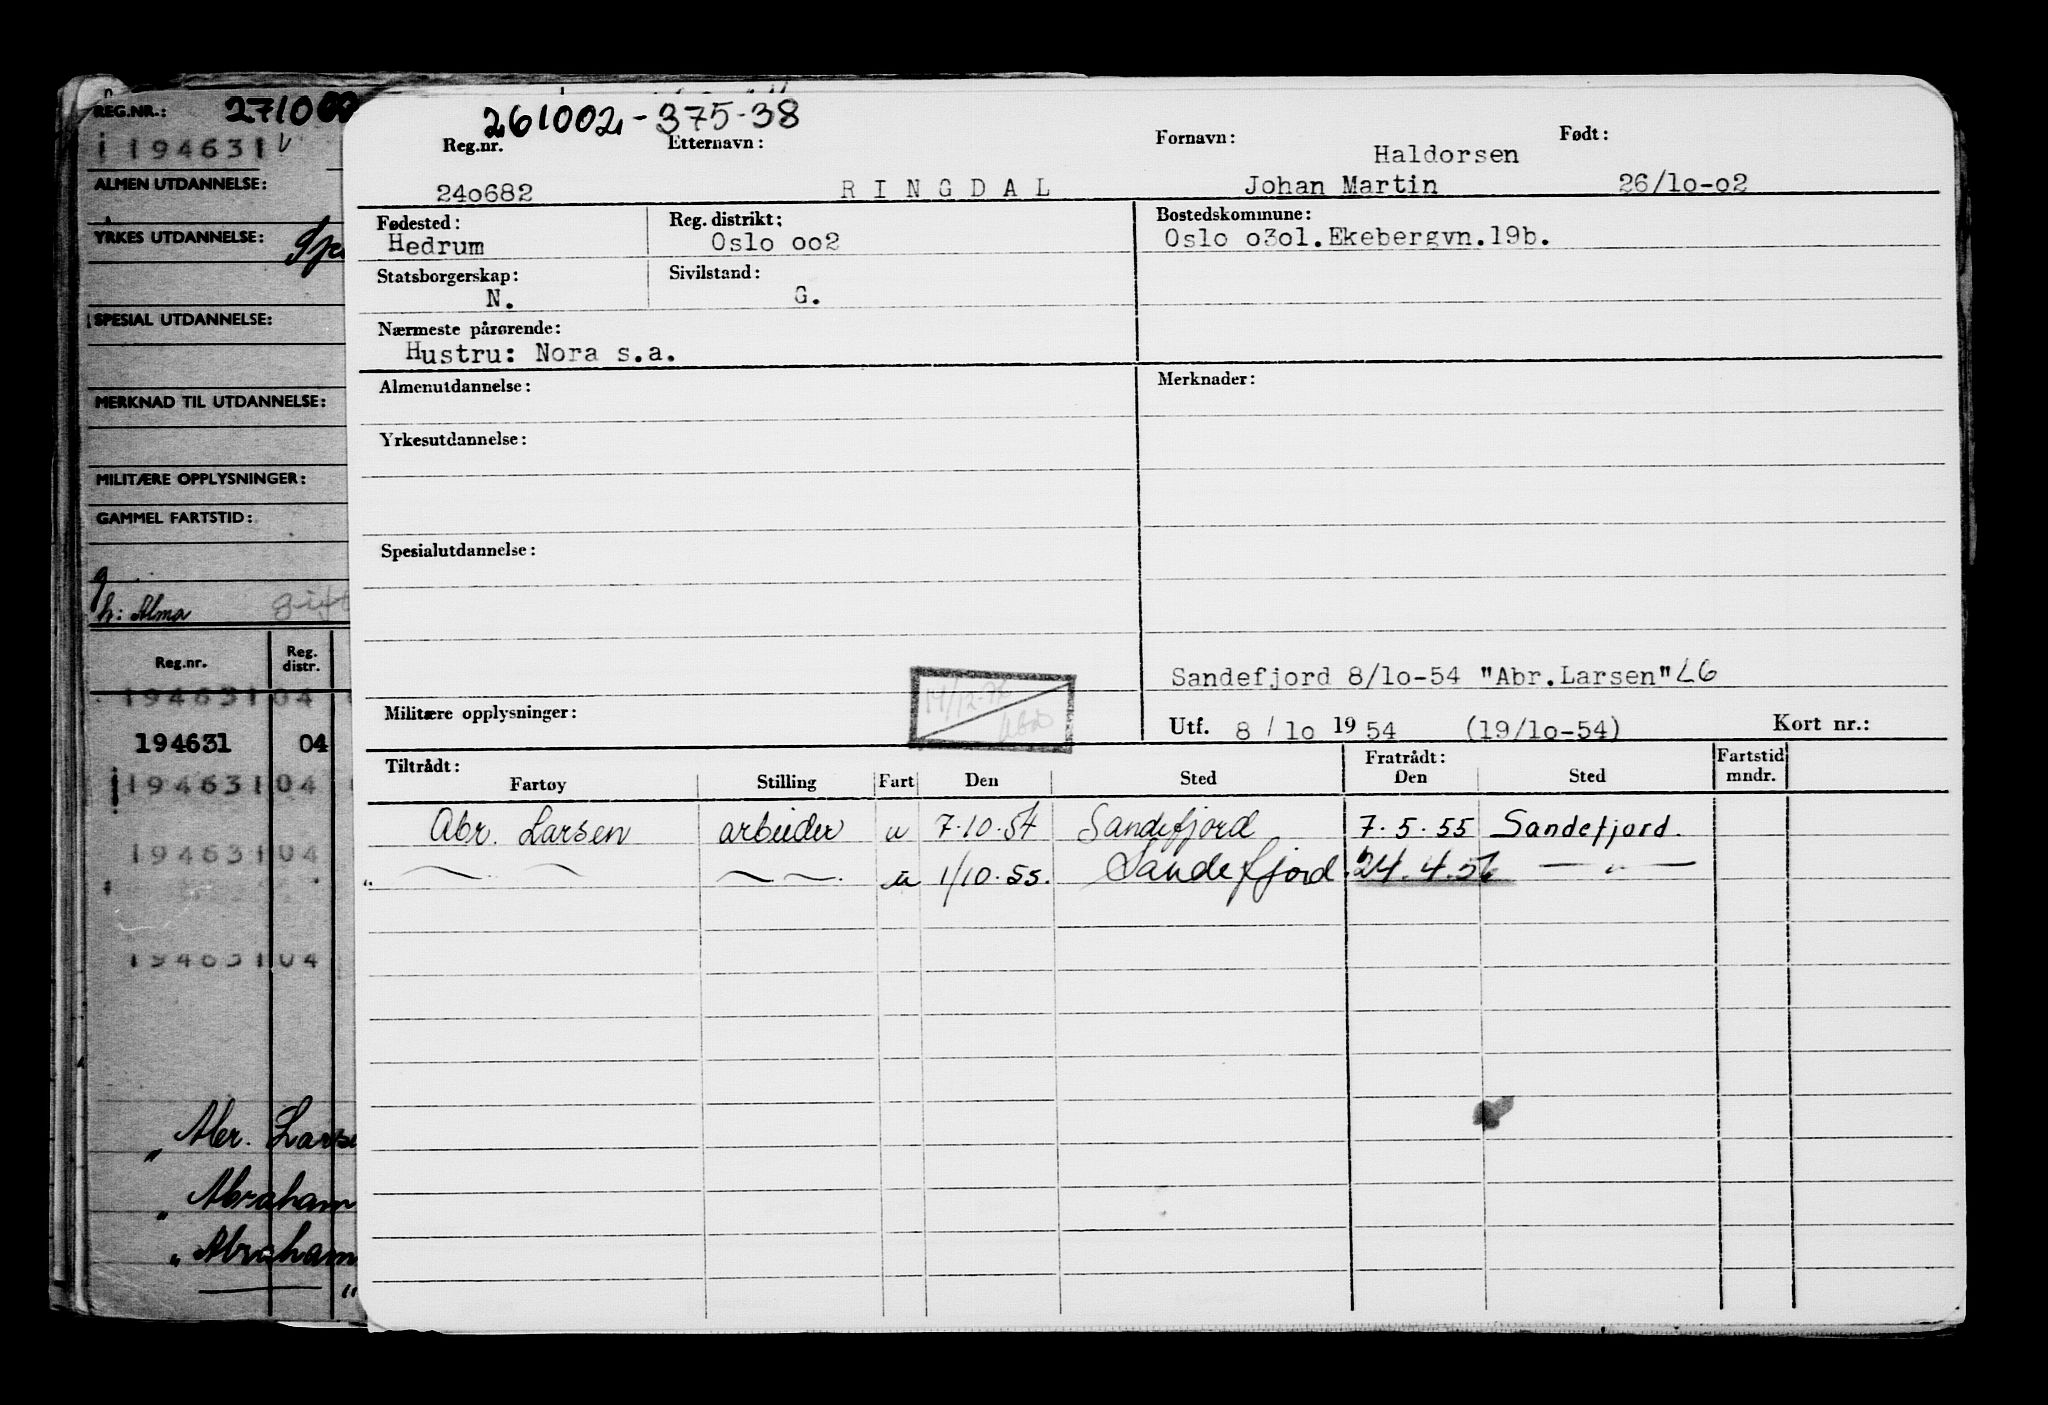 REG.NR.: 271000
i 194631 v
ALMEN UTDANNELSE:
YRKES UTDANNELSE:
SPESIAL UTDANNELSE:
MERKNAD TIL UTDANNELSE:
MILITÆRE OPPLYSNINGER:
GAMMEL FARTSTID:
g
h: Alma
Reg.nr. Reg. distr.
194631 04
194631 04
194631 04
194631 04
194631 04
" Abr. Larse
" Abraham
" Abraham
"
261002-375-38
Reg.nr. Etternavn: Fornavn: Født:
Haldorsen
240682 RINGDAL Johan Martin 26/10-02
Fødested: Reg. distrikt: Bostedskommune:
Hedrum Oslo 002 Oslo 0301. Ekebergvn.19b.
Statsborgerskap: Sivilstand:
N. G.
Nærmeste pårørende:
Hustru: Nora s.a.
Almenutdannelse: Merknader:
Yrkesutdannelse:
Spesialutdannelse:
Sandefjord 8/10-54 "Abr.Larsen" LG
Militære opplysninger:
Utf. 8 / 10 19 54 (19/10-54) Kort nr.:
Tiltrådt: Fratrådt: Fartstid
Fartøy Stilling Fart Den Sted Den Sted mndr.
Abr. Larsen arbeider u 7.10.54 Sandefjord 7.5.55 Sandefjord.
" — — — — u 1/10.55. Sandefjord. 24.4.56 — " —